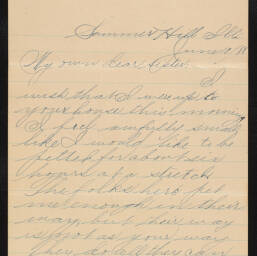 Summer Hill Ills
June
My own dear Sister.
I
wish that I were up to
your house this morning
I feel awfully small
like I would like to be
petted for about six
hours at a stretch
The folks here pet
me enough in their
way, but their way
is not as your way
They do all they can